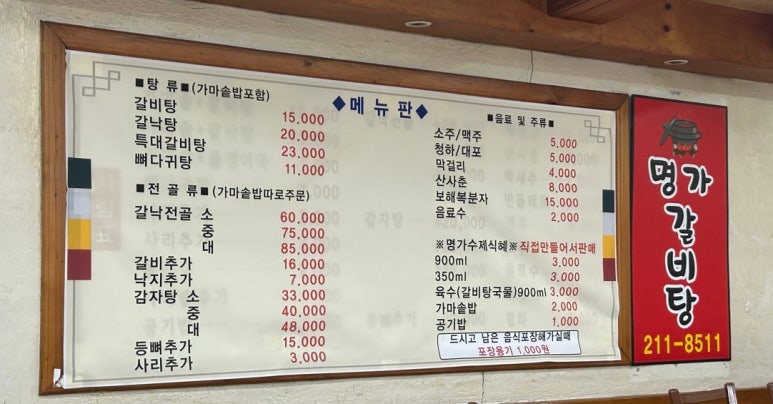 ◆메뉴판◆
■탕 류■(가마솥밥포함)
갈비탕 15,000
갈낙탕 20,000
특대갈비탕 23,000
뼈다귀탕 11,000
■전 골 류■(가마솥밥따로주문)
갈낙전골 소 60,000
중 75,000
대 85,000
갈비추가 16,000
낙지추가 7,000
감자탕 소 33,000
중 40,000
대 48,000
등뼈추가 15,000
사리추가 3,000
■음료 및 주류■
소주/맥주 5,000
청하/대포 5,000
막걸리 4,000
산사춘 8,000
보해복분자 15,000
음료수 2,000
※명가수제식혜※직접만들어서판매
900ml 3,000
350ml 3,000
육수(갈비탕국물)900ml 3,000
가마솥밥 2,000
공기밥 1,000
드시고 남은 음식포장해가실때
포장용기 1,000원
명가
갈비탕
211-8511